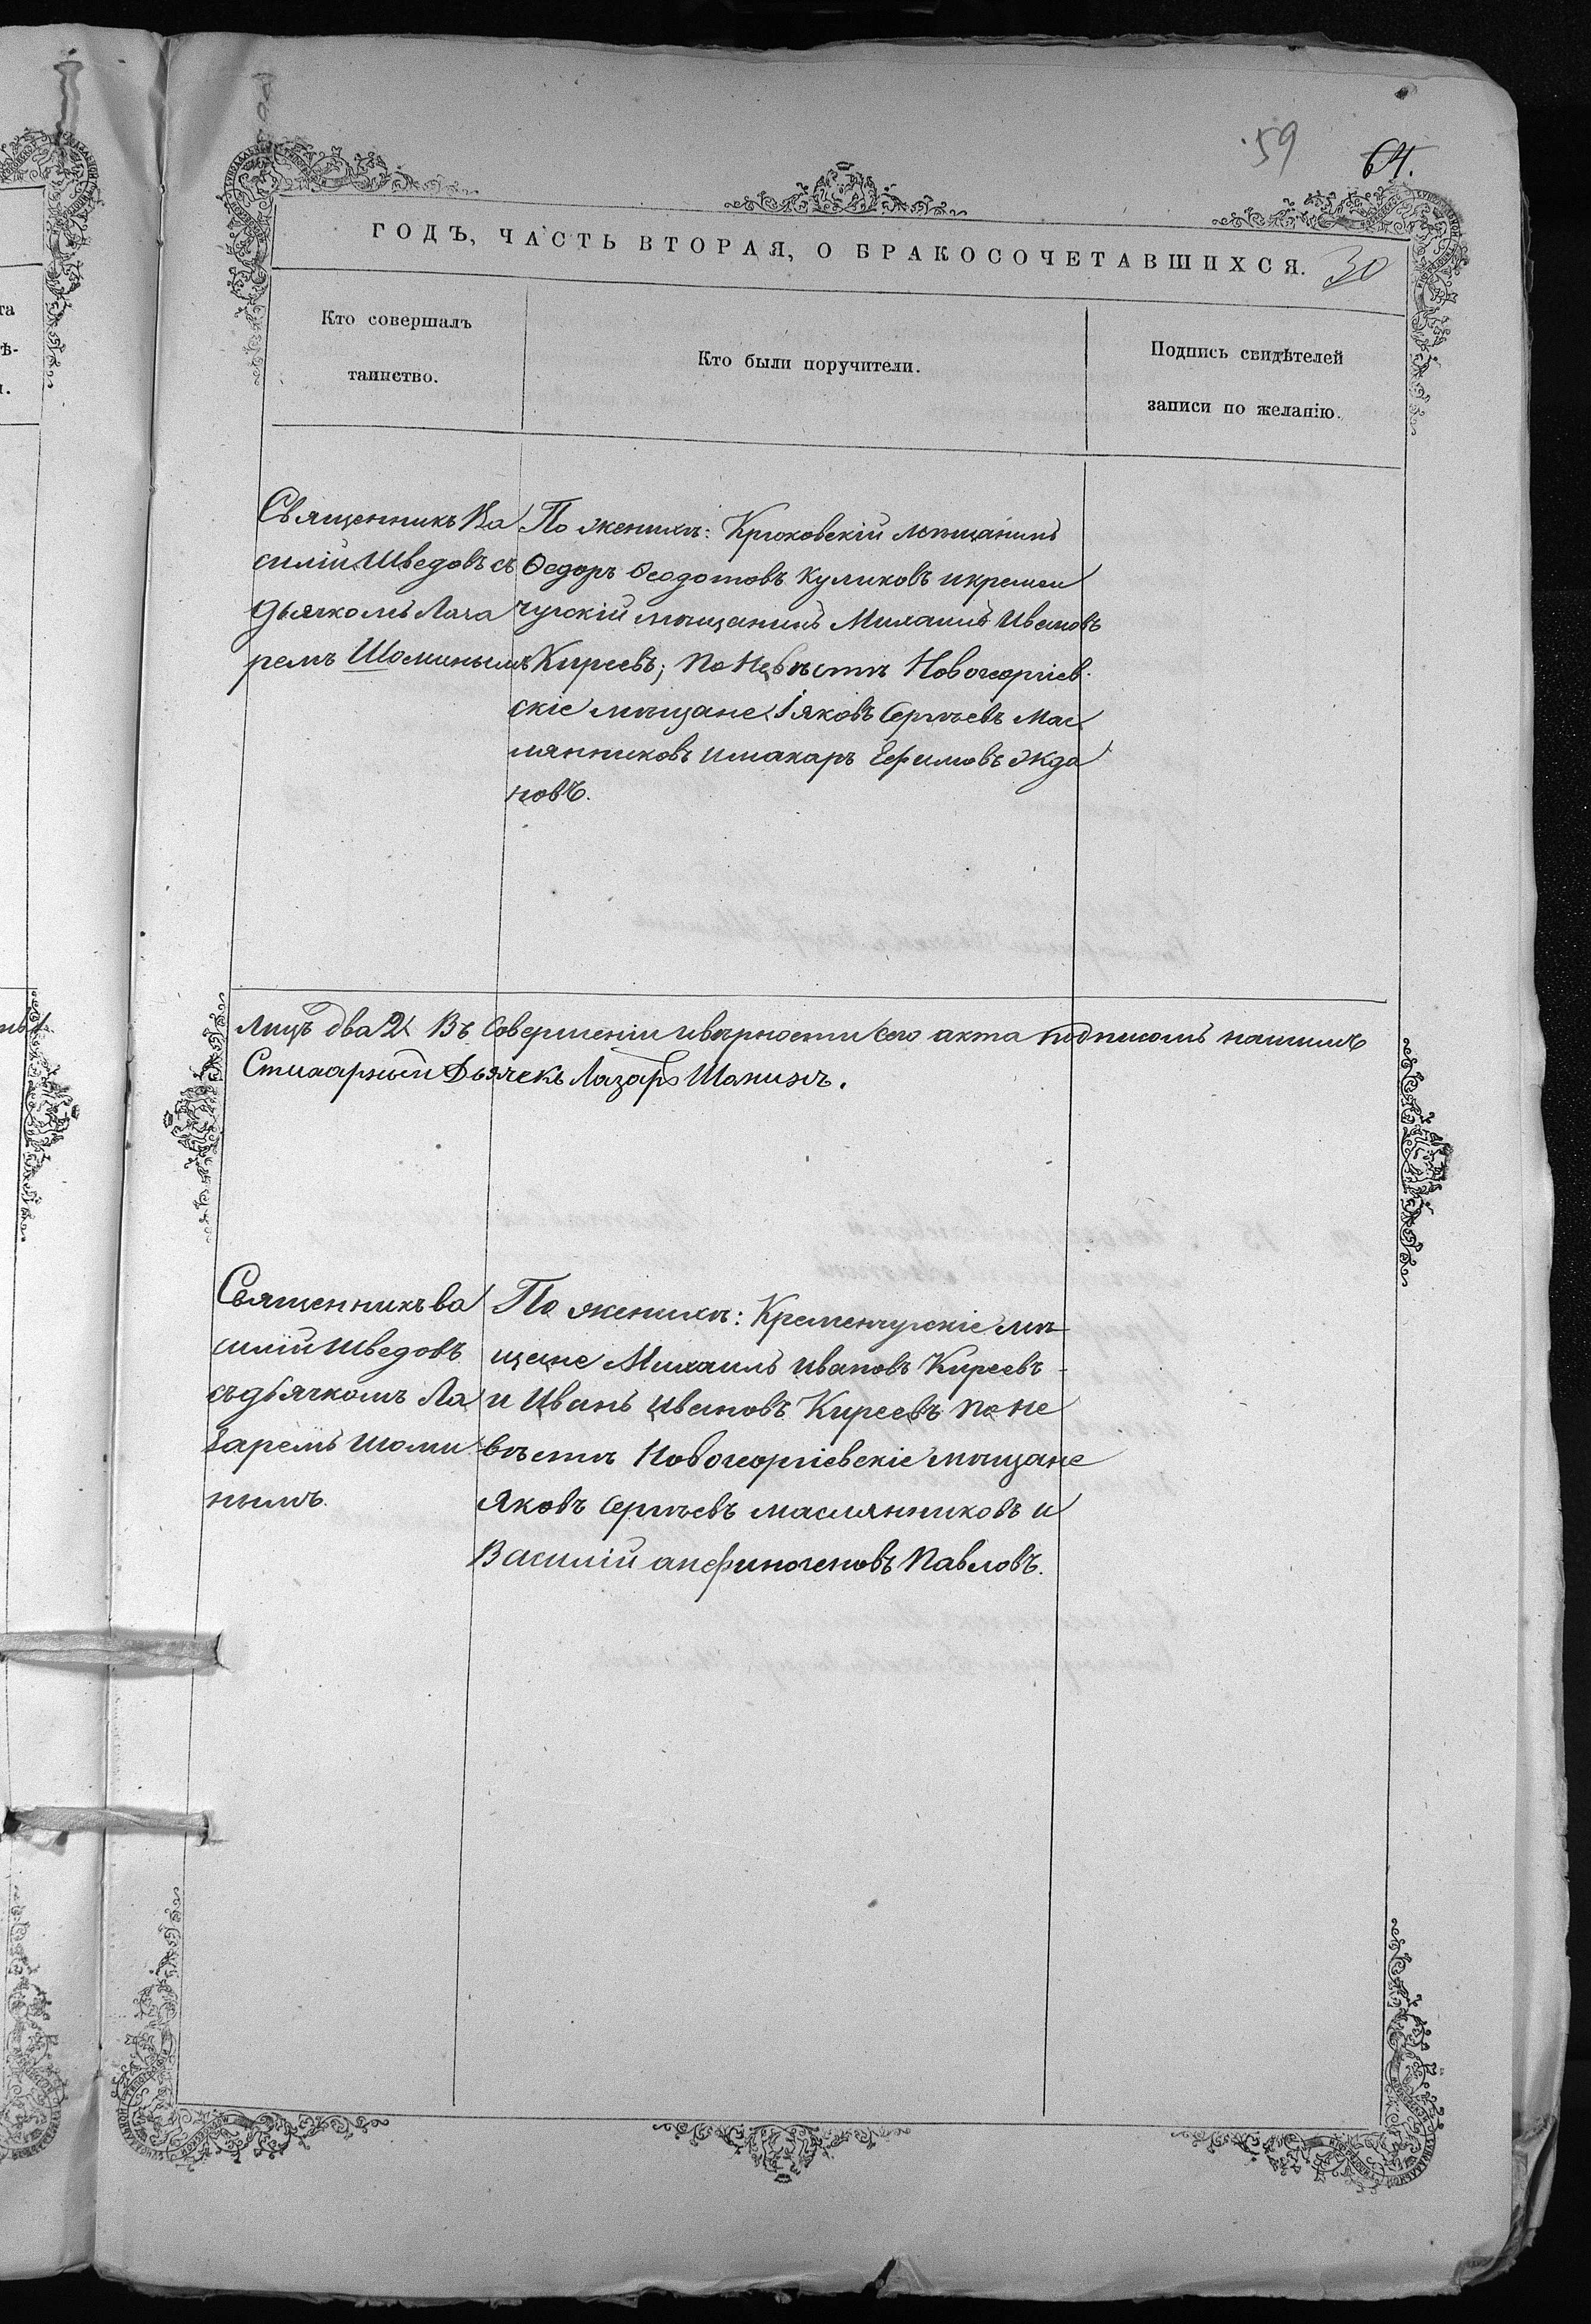 59 64.
ГОДЪ, ЧАСТЬ ВТОРАЯ, О БРАКОСОЧЕТАВШИХСЯ. 30
Кто совершалъ
таинство.
Кто были поручители.
Подпись свидѣтелей
записи по желанію.
Священникъ Ва
силій Шведовъ съ
дьячкомъ Лаза
ремъ Шоминымъ
По женихѣ: Крюковскій мѣщанинъ
Ѳедоръ Ѳеодотовъ Куликовъ и кремен
чугскій мѣщанинъ Михаилъ Ивановъ
Киреевъ; По Невѣстѣ Новогеоргіев
скіе мѣщане Іяковъ Сергѣевъ Мас
лянниковъ и макаръ Ефимовъ Жда
новъ.
Лицъ два 2. Въ Совершеніи и вѣрности сего акта подписомъ нашимъ
Стихарный Дьячекъ Лазарь Шоминъ.
Священникъ ва
силій Шведовъ
съ дьячкомъ Ла
заремъ Шоми
нымъ.
По женихѣ: Кременчугскіе мѣ
щане Михаилъ Ивановъ Киреевъ
и Иванъ Ивановъ Киреевъ По не
вѣстѣ Новогеоргіевскіе мѣщане
Яковъ Сергѣевъ маслянниковъ и
Василій анфиногеновъ Павловъ.